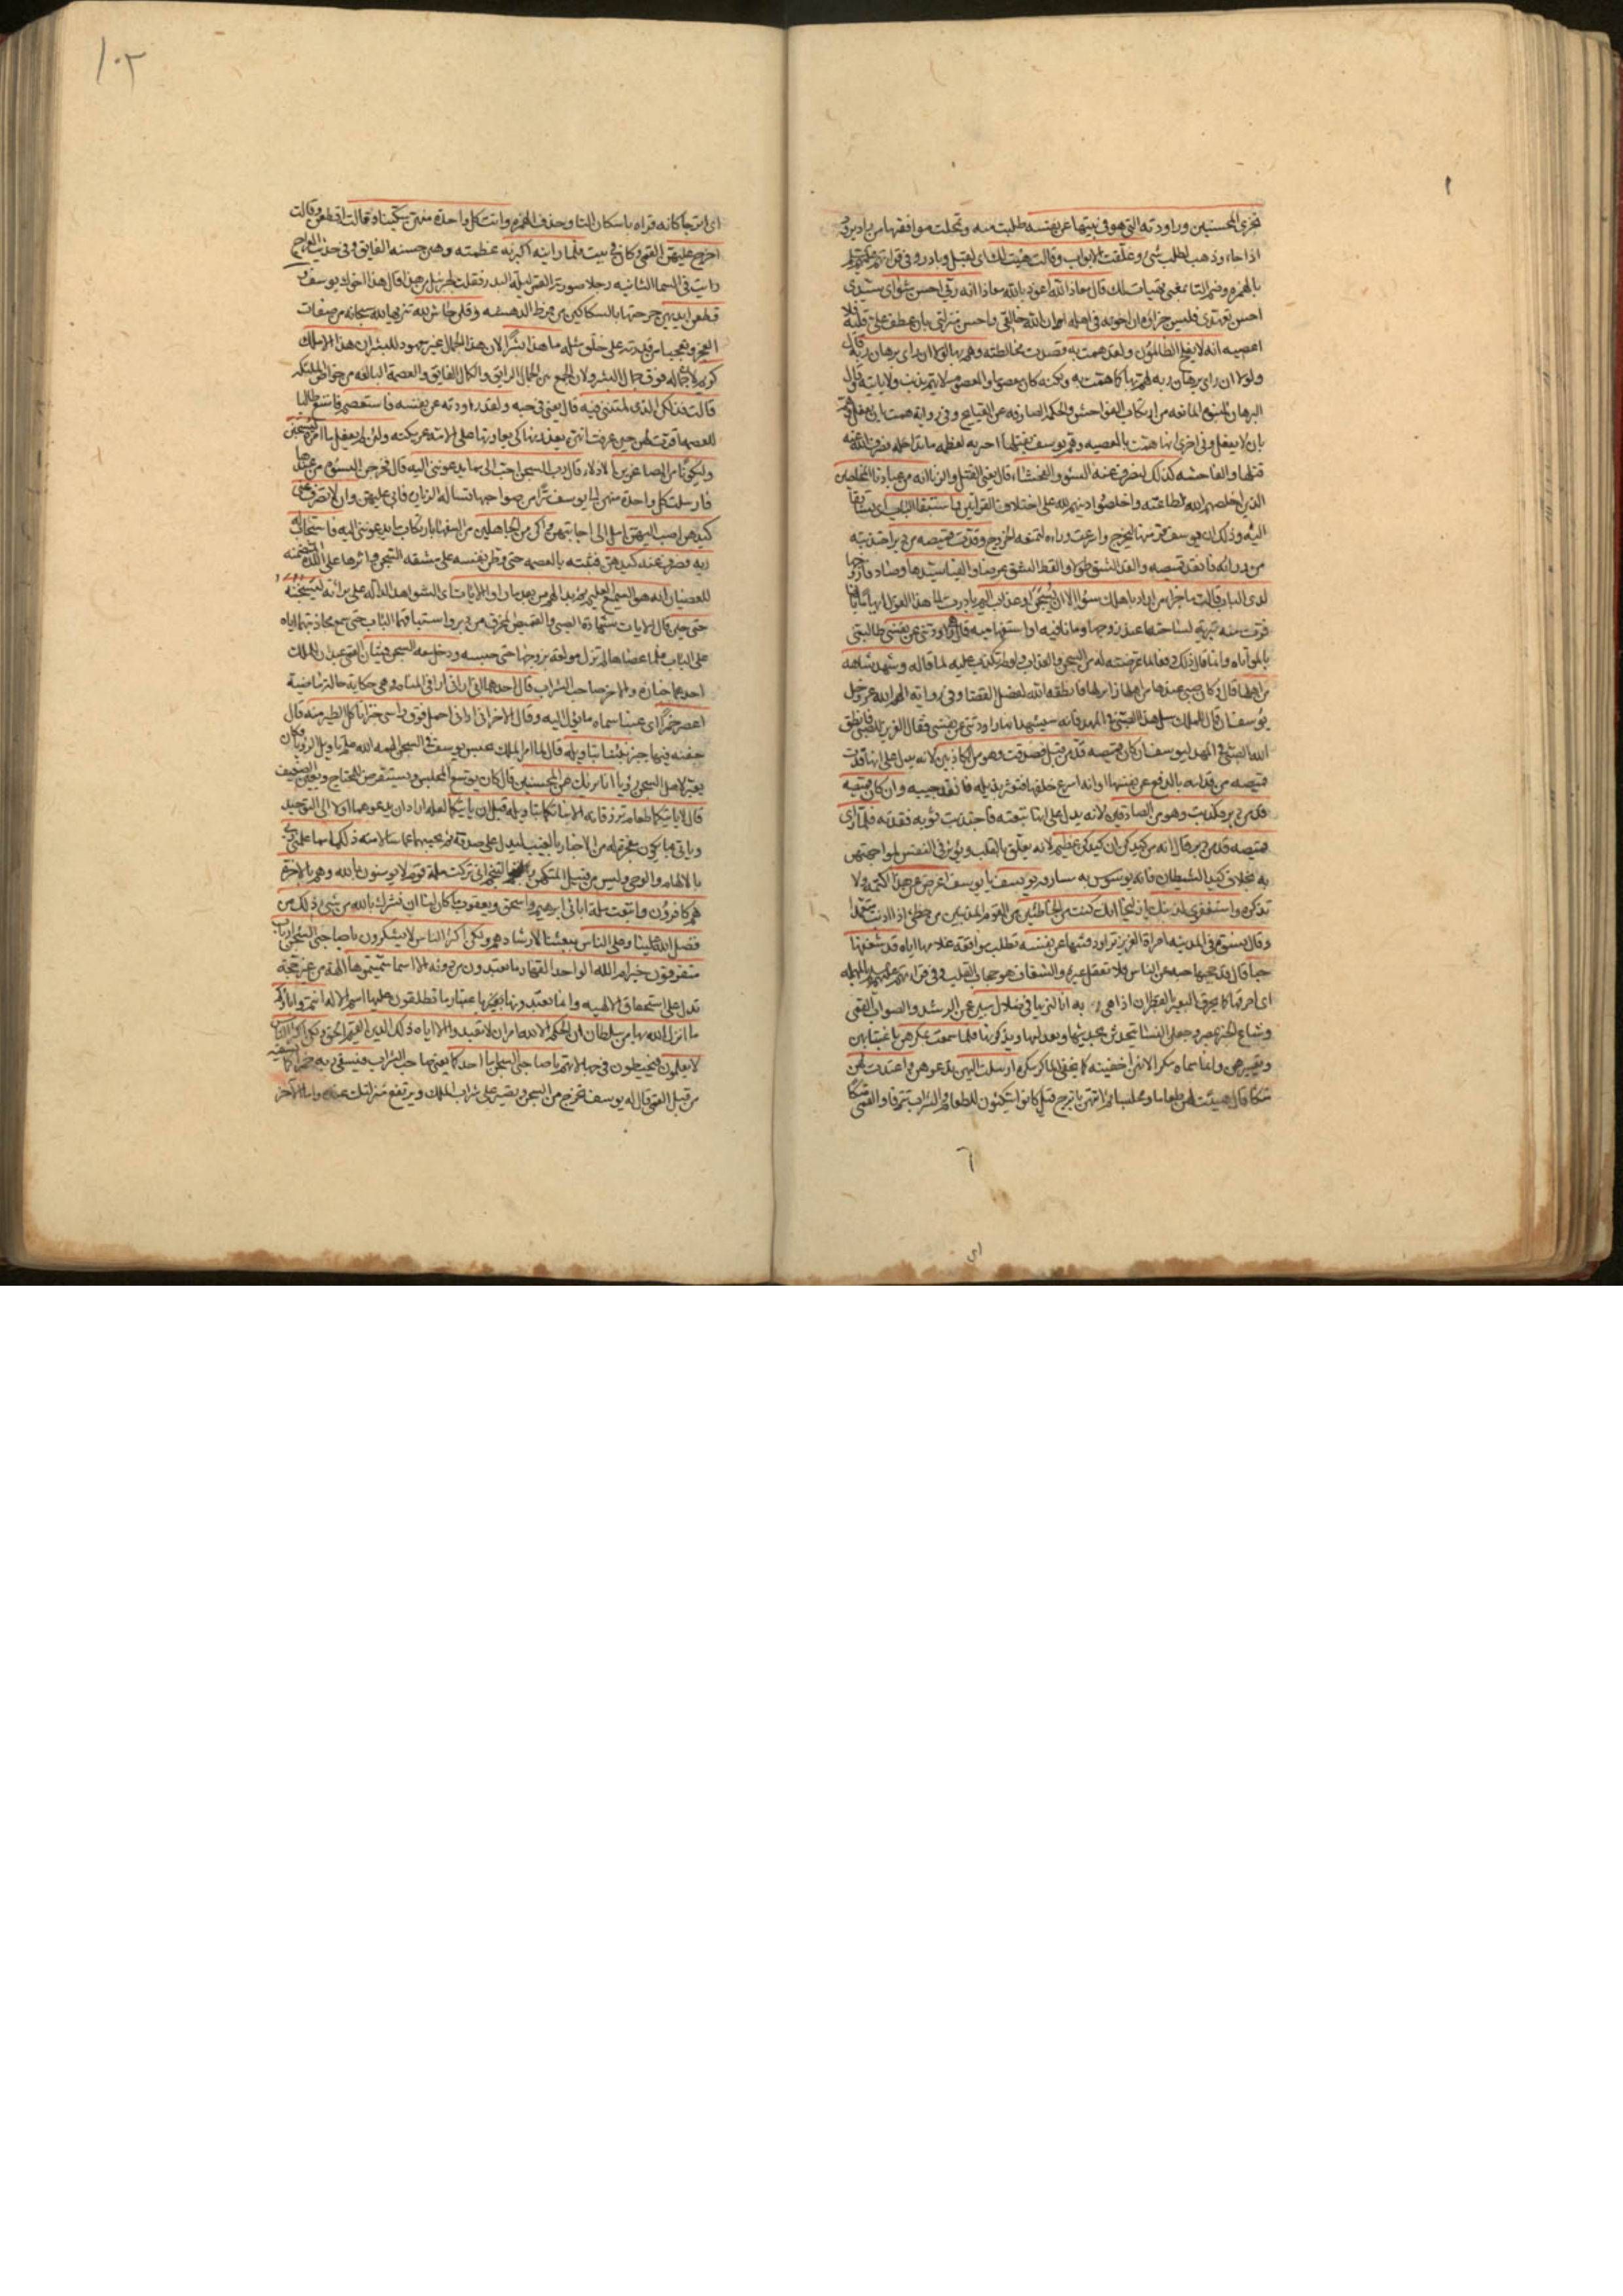 نجزي المحسنين وراودته التي هو في بيتها عن نفسه طلبت منه وتمحلت موافقتها من راد يرود
اذا جاء وذهب لطلب شئ وغلقت الابواب وقالت هيت لك اي اقبل وبادر وفي قرائتهم عليهم السلم
بالهمزه وضم التا بمعنى تهيات لك قال معاذ الله اعوذ بالله معاذا انه ربي احسن مثواي سيدي
احسن تعهدي فليس جزاؤه ان اخونه في اهله او ان الله خالقي واحسن منزلتي بان عطف علي قلبه فلا
اعصيه انه لا يفلح الظالمون ولقد همت به قصدت مخالطته وهم بها لولا ان راى برهان ربه قال
ولولا ان راى برهان ربه لهم بها كما همت به ولكنه كان معصوما والمعصوم لا يهم بذنب ولا ياتيه قيل
البرهان المانعه من ارتكاب الفواحش والحكمه الصارفه عن القبايح وفي روايه همت بان يفعل وهم
بان لا يفعل وفي اخرى انها همت بالمعصيه وهم يوسف بقتلها ان اجبرته لعظم ما تداخله فصرف الله عنه
قتلها والفاحشه كذلك لنصرف عنه السوء والفحشاء قال يعني القتل والزنا انه من عبادنا المخلصين
الذين اخلصهم الله لطاعته واخلصوا دينهم لله على اختلاف القرائتين واستبقا الباب اي تسابقا
اليه وذلك ان يوسف فر منها ليخرج واسرعت وراءه لتمنعه الخروج وقدت قميصه من دبر اجتذبته
من ورائه فانقد قميصه والقد الشق طولا والقط الشق عرضا والفيا سيدها وصادفا زوجها
لدى الباب قالت ما جزاء من اراد باهلك سوءا الا ان يسجن او عذاب اليم بادرت الى هذا القول ايهاما بانها
فرت منه تبرئه لساحتها عند زوجها وما نافيه او استفهاميه قال هي راودتني عن نفسي طالبتني
بالمواتاه وانما قال ذلك دفعا لما عرضته له من السجن والعذاب ولو لم تكذب عليه لما قاله وشهد شاهد
من اهلها قال وكان صبي عندها من اهلها زائر لها فانطقه الله لفصل القضا وفي روايه الهم الله عز وجل
يوسف ان قال للملك سل هذا الصبي في المهد فانه سيشهد انها راودتني عن نفسي فقال العزيز للصبي فانطق
الله الصبي في المهد ليوسف ان كان قميصه قد من قبل فصدقت وهو من الكاذبين لانه يدل على انها قدت
قميصه من قدامه بالدفع عن نفسها او انه اسرع خلفها فتعثر بذيله فانقد جيبه وان كان قميصه
قد من دبر فكذبت وهو من الصادقين لانه يدل على انها تبعته فاجتذبت ثوبه فقدته فلما راى
قميصه قد من دبر قال انه من كيدكن ان كيدكن عظيم لانه يعلق بالقلب ويؤثر في النفس لمواجهتهن
به بخلاف كيد الشيطان فانه يوسوس به مسارقه يوسف يا يوسف اعرض عن هذا اكتمه ولا
تذكره واستغفري لذنبك يا زليخا انك كنت من الخاطئين من القوم المذنبين من خطئ اذا اذنب متعمدا
وقال نسوة في المدينه امراة العزيز تراود فتيها عن نفسه تطلب موافقه غلامها اياه قد شغفها
حبا قال قد حجبها حبه عن الناس فلا تعقل غيره والشغاف هو حجاب القلب وفي قرائتهم عليهم السلم بالمهمله
اي احرقها كما يحرق البعير بالقطران اذا هنئ به انا لنريها في ضلال مبين عن الرشد والصواب القمي
وشاع الخبر بمصر وجعلن النسا يتحدثن بحديثها ويعذلنها ويذكرنها فلما سمعت بمكرهن باغتيابهن
وتعييرهن وانما سماه مكرا لانهن اخفينه كما يخفي الماكر مكره ارسلت اليهن تدعوهن واعتدت لهن
متكا قال هيئت لهن طعاما ومجلسا ثم اتتهن باترج قيل كانوا يتكئون للطعام والشراب تترفا والقمي متكا
اي اترجا كانه قراه باسكان التا وحذف الهمزه واتت كل واحدة منهن سكينا وقالت اقطعن وقالت
اخرج عليهن القمي وكان في بيت فلما راينه اكبرنه عظمنه وهبن حسنه الفايق وفي حديث المعراج
رايت في السما الثانيه رجلا صورته القمر ليلة البدر فقلت لجبرئيل من هذا قال هذا اخوك يوسف و
قطعن ايديهن جرحنها بالسكاكين من فرط الدهشه وقلن حاش لله تنزيها لله سبحانه من صفات
العجز وتعجبا من قدرته على خلق مثله ما هذا بشرا لان هذا الجمال غير معهود للبشر ان هذا الا ملك
كريم لان جماله فوق جمال البشر ولان الجمع بين الجمال الرايق والكمال الفايق والعصمة البالغه من خواص الملئكه
قالت فذلكن الذي لمتنني فيه قال يعني في حبه ولقد راودته عن نفسه فاستعصم فامتنع طالبا
للعصمه اقرت لهن حين عرفت انهن يعذرنها كي يعاونها على الانه عريكته ولئن لم يفعل ما امره ليسجنن
وليكونا من الصاغرين الاذلاء قال رب السجن احب الي مما يدعونني اليه قال فخرجن النسوه من عندها
فارسلت كل واحدة منهن الى يوسف سرا من صواحبها تساله الزياره فابى عليهن وان لا تصرف عني
كيدهن اصب اليهن امل الى اجابتهن واكن من الجاهلين من السفها بارتكاب ما يدعونني اليه فاستجاب له
ربه فصرف عنه كيدهن فثبته بالعصمه حتى وطن نفسه على مشقه السجن واثرها على اللذة المتضمنه
للعصيان انه هو السميع العليم ثم بدا لهم من بعد ما راوا الايات اي الشواهد الداله على برائته ليسجننه
حتى حين قال الايات شهادة الصبي والقميص المخرق من دبر واستباقهما الباب حتى سمع مجاذبتها اياه
على الباب فلما عصاها لم تزل مولعه بزوجها حتى حبسه ودخل معه السجن فتيان القمي عبدان للملك
احدهما خباز والاخر صاحب الشراب قال احدهما اني اراني اي ارى في المنام وهي حكاية حال ماضية
اعصر خمرا اي عنبا سماه ما يؤل اليه وقال الاخر اني اراني احمل فوق راسي خبزا تاكل الطير منه قال
جفنه فيها خبز نبئنا بتاويله قال لما امر الملك بحبس يوسف في السجن الهمه الله علم تاويل الرؤيا فكان
يعبر لاهل السجن رؤياهم انا نريك من المحسنين قال كان يوسع المجلس ويستقرض للمحتاج ويعين الضعيف
قال لا ياتيكما طعام ترزقانه الا نباتكما بتاويله قبل ان ياتيكما لعله اراد ان يدعوهما اولا الى التوحيد
وياتي بما يكون معجزة له من الاخبار بالغيب ليدل على صدقه ثم يجيبهما عما سالا منه ذلكما مما علمني ربي
بالالهام والوحي وليس من قبيل التكهن والتنجم اني تركت ملة قوم لا يؤمنون بالله وهم بالاخرة
هم كافرون واتبعت ملة ابائي ابرهيم واسحق ويعقوب ما كان لنا ان نشرك بالله من شئ ذلك من
فضل الله علينا وعلى الناس ببعثنا لارشادهم ولكن اكثر الناس لا يشكرون يا صاحبي السجن ءارباب
متفرقون خير ام الله الواحد القهار ما تعبدون من دونه الا اسما سميتموها الهة من غير حجة
تدل على استحقاق الالهيه وانما تعبدونها باعتبار ما تطلقون عليها اسم الاله انتم واباؤكم
ما انزل الله بها من سلطان ان الحكم الا لله امر ان لا تعبدوا الا اياه ذلك الدين القيم الحق ولكن اكثر الناس
لا يعلمون فيخبطون في جهالاتهم يا صاحبي السجن اما احدكما يعني صاحب الشراب فيسقي ربه خمرا كما يسقيه
من قبل القمي قال له يوسف تخرج من السجن وتصير على شراب الملك ويرتفع منزلتك عنده واما الاخر